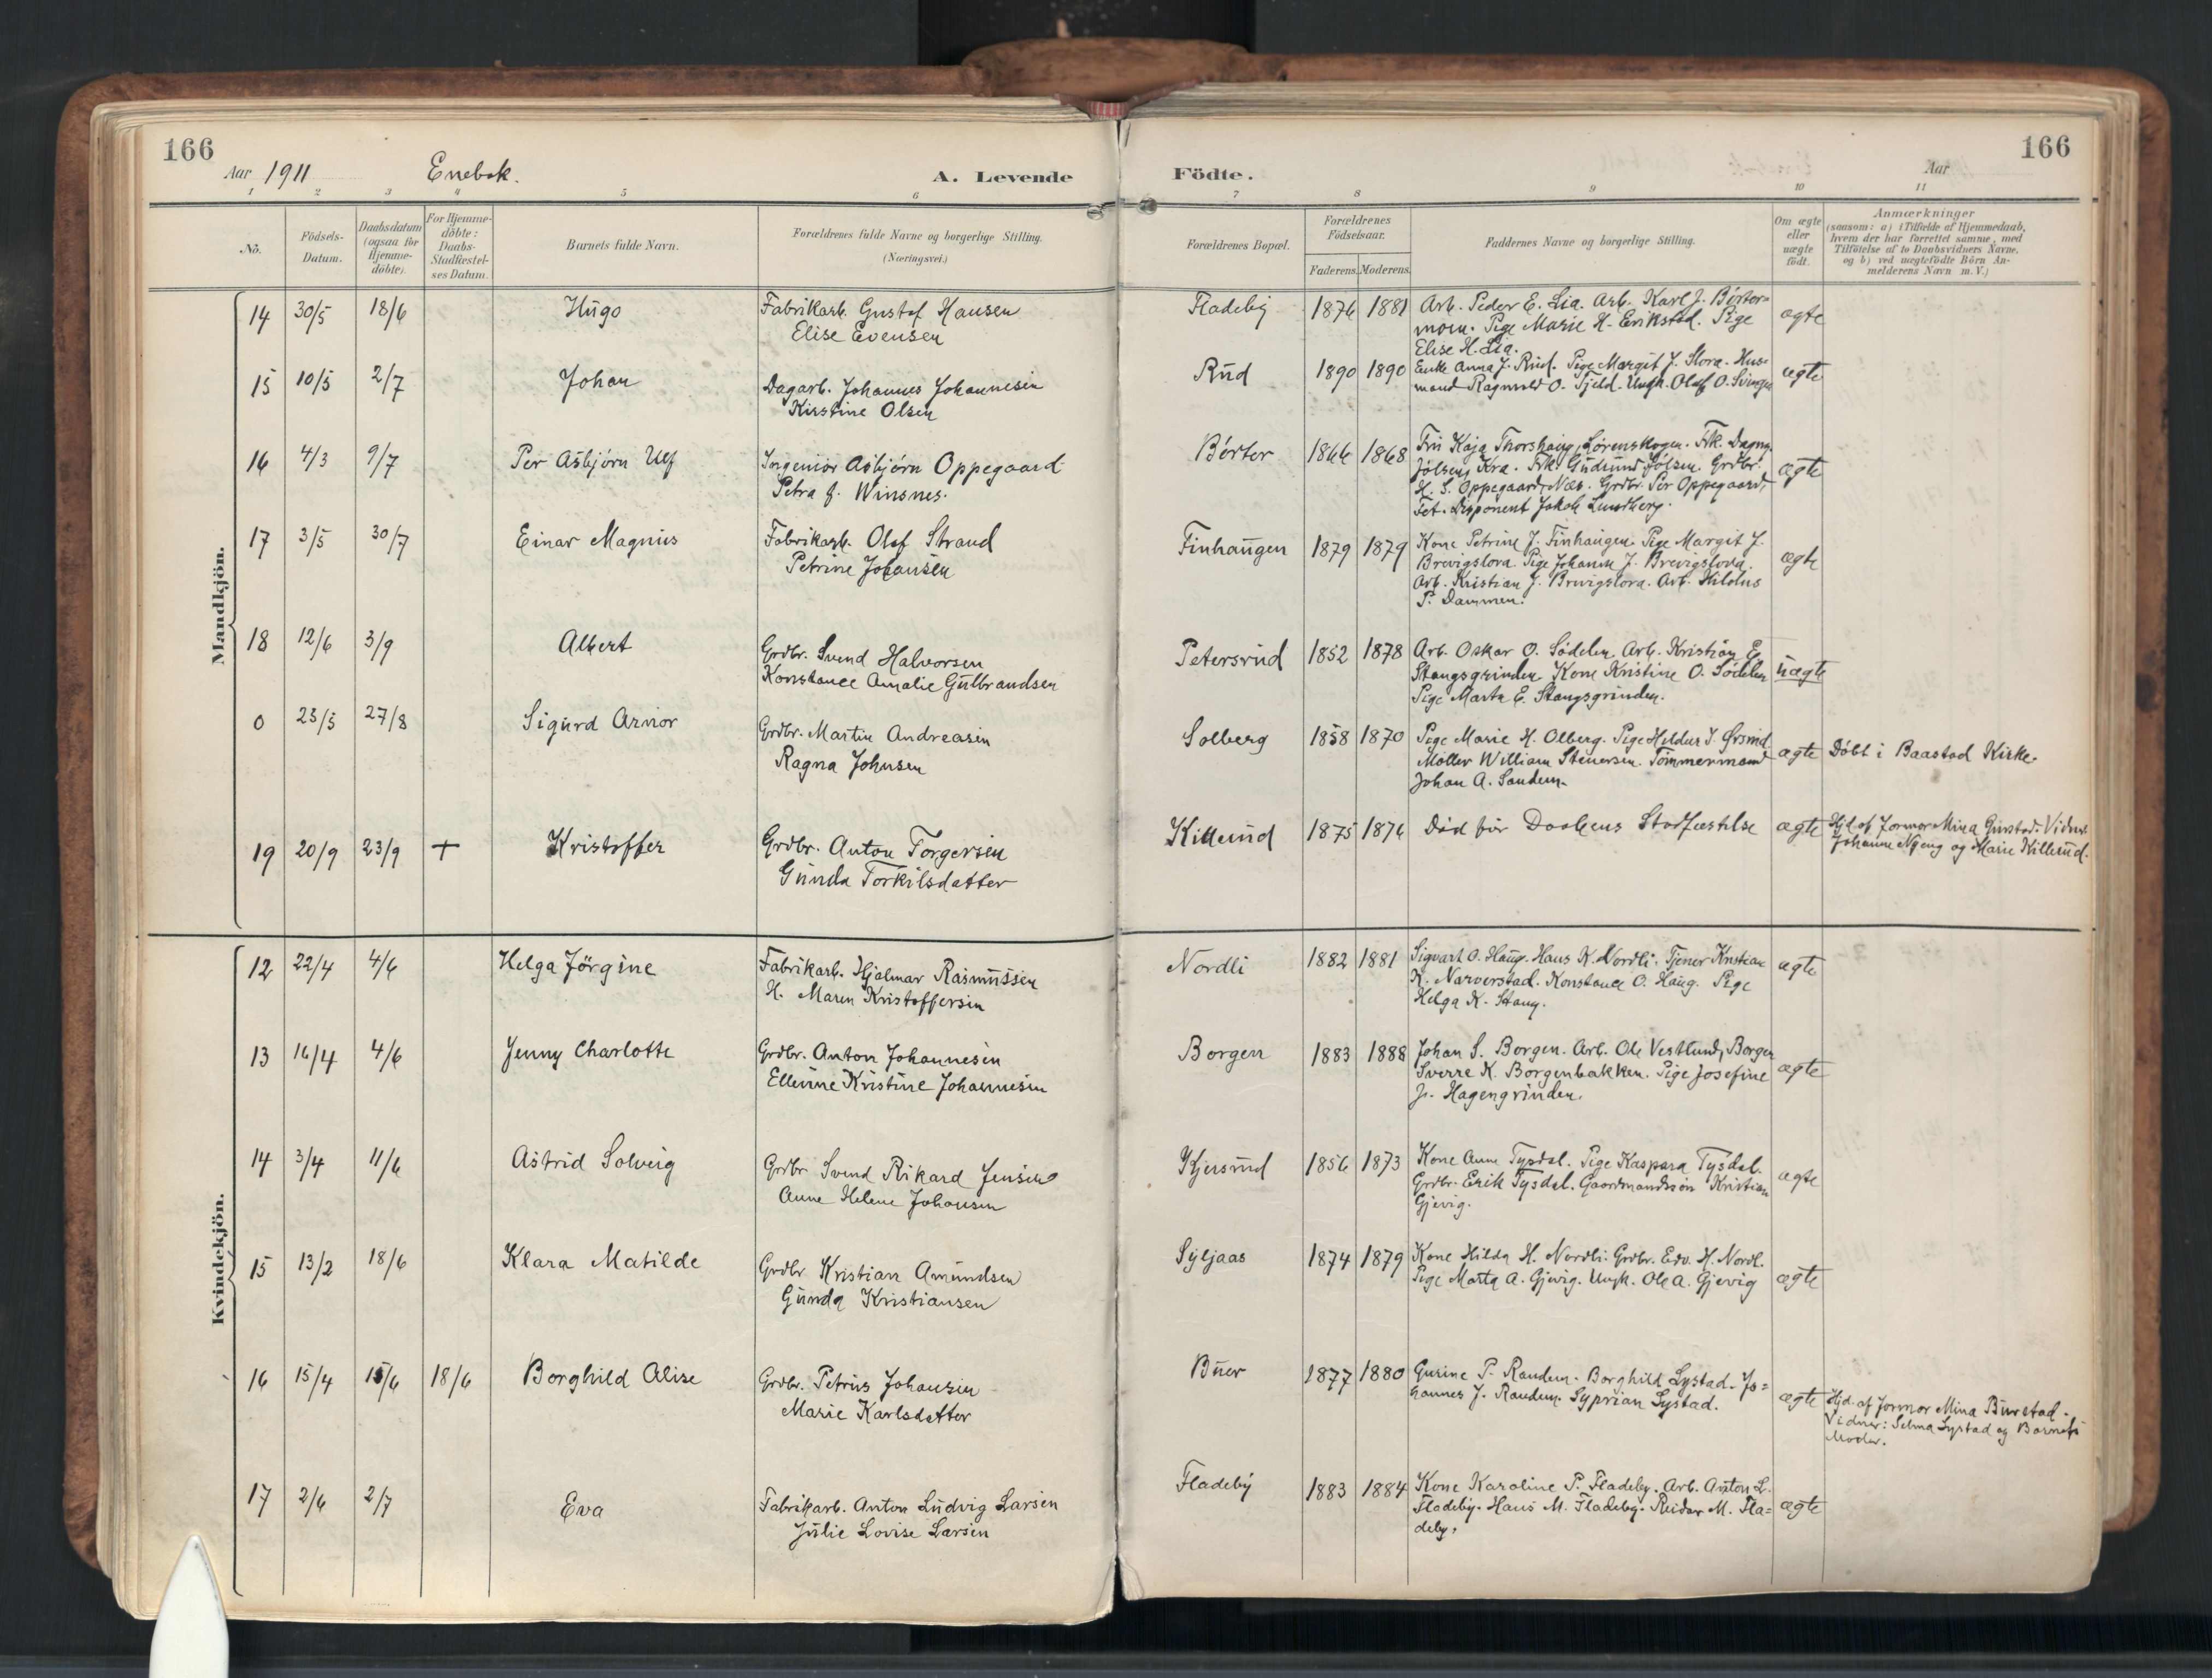 166
Aar 1911 Enebak. A. Levende
Födte. Aar 166
1 2 3 4 5 6 7 8 9 10 11
Nö.
Födsels-Datum.
Daabsdatum (ogsaa for Hjemme-döbte).
For Hjemme-döbte: Daabs-Stadfæstel-ses Datum.
Barnets fulde Navn.
Forældrenes fulde Navne og borgerlige Stilling.
(Næringsvei.)
Forældrenes Bopæl.
Forældrenes Födselsaar.
Faderens. Moderens.
Faddernes Navne og borgerlige Stilling.
Om ægte eller uægte födt.
Anmærkninger
(saasom: a) i Tilfælde af Hjemmedaab,
hvem der har forrettet samme, med
Tilföielse af to Daabsvidners Navne,
og b) ved uægtefödte Börn An-
melderens Navn m. V.)
Mandkjön.
14 30/5 18/6 Hugo
Fabrikarb. Gustaf Hansen
Elise Evensen
Fladeby 1876 1881
Arb. Peder E. Lia. Arb. Karl J. Börter=
moen. Pige Marie H. Erikstad. Pige
Elise H. Lia.
ægte
15 10/5 2/7 Johan
Dagarb. Johannes Johannesen
Kirstine Olsen
Rud 1890 1890
Enke Anna J. Rud. Pige Margit J. Slora. Hus=
mand Ragnvald O. Tjeld. Ungk. Olaf O.
ægte
16 4/3 9/7 Per Asbjörn Ulf
Ingeniör Asbjörn Oppegaard
Petra f. Winsnes.
Börter 1866 1868
Fru Kaja Thorshaug, Lörenskogen. Frk. Dagny
Jölsen, Kra. Frk. Gudrund Jölsen. Grdbr.
H. S. Oppegaard, Næs. Grdbr. Per Oppegaard,
Fet. Disponent Jakob Lundberg.
ægte
17 3/5 30/7 Einar Magnus
Fabrikarb. Olaf Strand
Petrine Johansen
Finhaugen 1879 1879
Kone Petrine J. Finhaugen. Pige Margit J.
Brevigslora. Pige Johanne J. Brevigslora.
Arb. Kristian J. Brevigslora. Arb. Hildus
P. Dammen.
ægte
18 12/6 3/9 Albert
Grdbr. Svend Halvorsen
Konstance Amalie Gulbrandsen
Petersrud 1852 1878
Arb. Oskar O. Södelen. Arb. Kristian E.
Stangsgrinden Kone Kristine O. Södelen
Pige Marta E. Stangsgrinden.
uægte
0 23/5 27/8 Sigurd Arnor
Grdbr. Martin Andreasen
Ragna Johnsen
Solberg 1858 1870
Pige Marie H. Olberg. Pige Hildur J.
Möller William Stenersen. Tömmermand
Johan A. Sandem.
ægte
Döbt i Baastad Kirke.
19 20/9 23/9 + Kristoffer
Grdbr. Anton Torgersen
Gunda Torkilsdatter
Killerud 1875 1876
Död för Daabens Stadfæstelse
ægte
Hjd. af Jormor Mina Vidner
Johanne Nyeng og Marie Killerud.
Kvindekjön.
12 22/4 4/6 Helga Jörgine
Fabrikarb. Hjalmar Rasmussen
H. Maren Kristoffersen
Nordli 1882 1881
Sigvart O. Haug. Hans K. Nordli. Tjener Kristian
K. Narverstad. Konstance O. Haug. Pige
Helga K. Stang.
ægte
13 16/4 4/6 Jenny Charlotte
Grdbr. Anton Johannesen
Ellevine Kristine Johannesen
Borgen 1883 1888
Johan S. Borgen. Arb. Ole Vestlund, Borgen
Sverre K. Borgenbakken. Pige Josefine
J. Hagengrinden.
ægte
14 3/4 11/6 Astrid Solveig
Grdbr Svend Rikard Jensen
Anne Helene Johansen
Kjensrud 1856 1873
Kone Anne Tysdal. Pige Kaspara Tysdal.
Grdbr. Erik Tysdal. Gaardmandssön Kristian
Gjevig.
ægte
15 13/2 18/6 Klara Matilde
Grdbr Kristian Amundsen
Gunda Kristiansen
Syljaas 1874 1879
Kone Hilda H. Nordli. Grdbr. Edv. H. Nordl.
Pige Marta A. Gjevig. Ungk. Ole A. Gjevig
ægte
16 15/4 15/6 18/6 Borghild Alise
Grdbr. Petrus Johansen
Marie Karlsdatter
Buer 1877 1880
Gurine P. Randem. Borghild Lystad. Jo=
hannes J. Randem. Syprian Lystad.
ægte
Hjd. af Jormor Mina Burstad.
Vidner: Selma Lystad og Barnets
Moder.
17 2/6 2/7 Eva
Fabrikarb. Anton Ludvig Larsen
Julie Lovise Larsen
Fladeby 1883 1884
Kone Karoline P. Fladeby. Arb. Anton L.
Fladeby. Hans M. Fladeby. Reidar M. Fla=
deby.
ægte